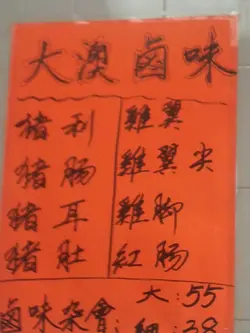 大澳鹵味
豬利 雞翼
豬腸 雞翼尖
豬耳 雞腳
豬肚 紅腸
鹵味杂會: 大:55
細:38